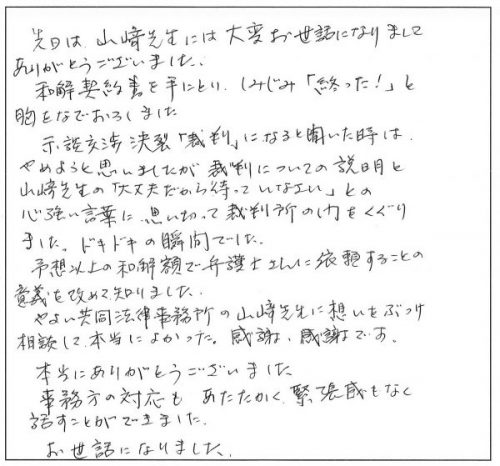 先日は、山﨑先生には大変お世話になりまして
ありがとうございました。
和解契約書を手にとり、しみじみ「終った!」と
胸をなでおろしました
示談交渉決裂「裁判」になると聞いた時は、
やめようと思いましたが裁判についての説明と
山﨑先生の「大丈夫だから待っていなさい」との
心強い言葉に、思い切って裁判所の門をくぐり
ました。ドキドキの瞬間でした。
予想以上の和解額で弁護士さんに依頼することの
意義を改めて知りました。
やよい共同法律事務所の山﨑先生に想いをぶつけ
相談して、本当によかった。感謝、感謝です。
本当にありがとうございました
事務方の対応も あたたかく、緊張感もなく
話すことができました。
お世話になりました。